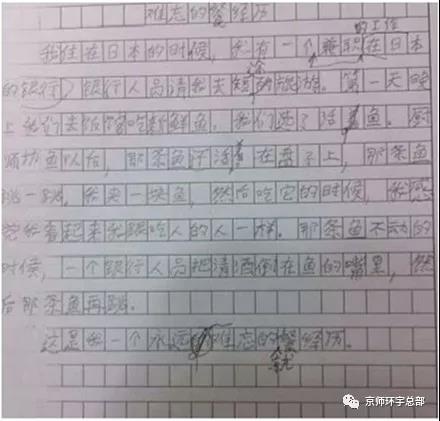 难忘的餐经历
我住在日本的时候，我有一个兼职在日本
的工作
的银行，银行人员请我去短途旅旅。第一天晚
上我们去饭馆吃新鲜鱼。我们选了活鱼。厨
师切鱼以后，那条鱼还活在盘子上，那条鱼
跳一跳，我夹一块鱼，然后吃它的时候，我感
觉我看起来我跟吃人的人一样。那条鱼不动的
时候，一个银行人员把清酒倒在鱼的嘴里，然
后那条鱼再跳。
这是我一个永远难忘的餐经历。
京师环宇总部